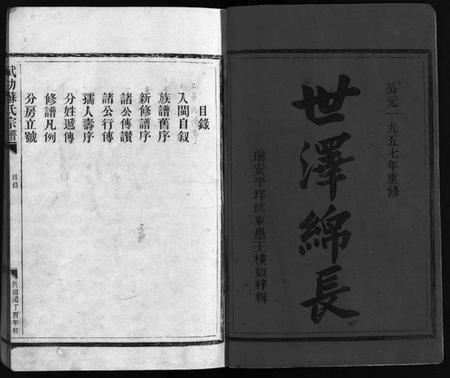 公元一九五七年重修
世澤綿長
瑞安平垟坑東學王樸如梓輯
目錄
入閩自叙
族譜舊序
新修譜序
諸公傳讚
諸公行傳
孺人壽序
分姓遞傳
修譜凡例
分房立號
武功蘇氏宗譜
目錄
民國丁酉年修